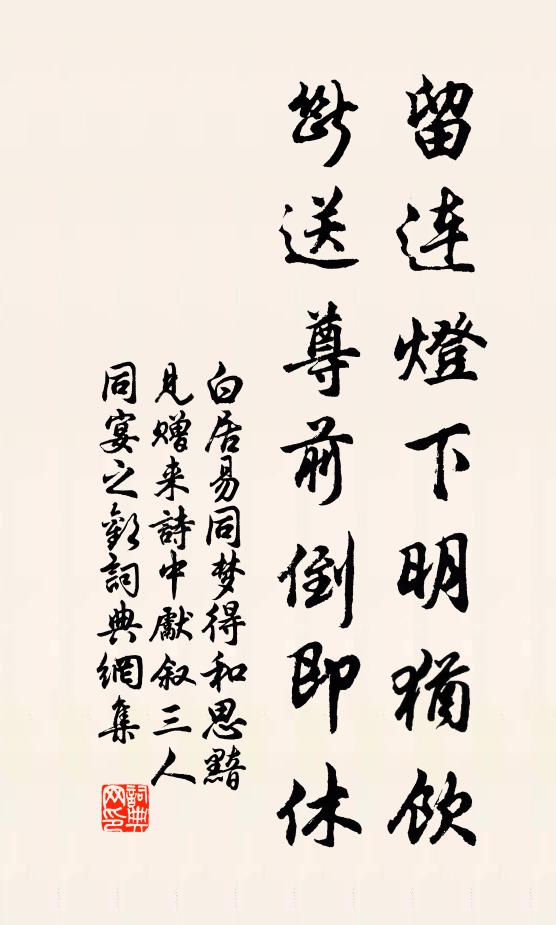 留连燈下明猶飲
斷送尊前倒即休
白居易同梦得和思黯
見赠来詩中獻叙三人
同宴之歡詞典網集
詞典
网印